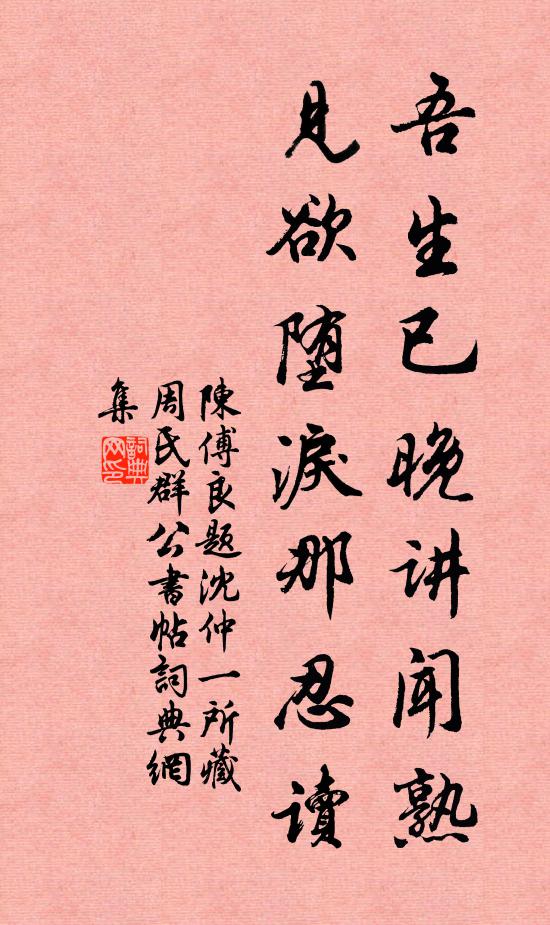 吾生已晚讲闻熟
見欲堕淚那忍讀
陳傅良题沈仲一所藏
周氏群公書帖詞典網
集
詞典网印